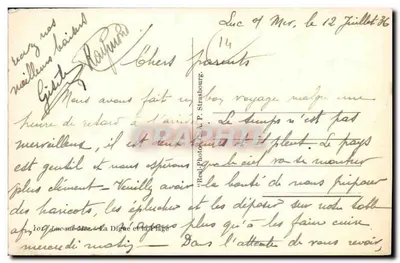 Luc s/ Mer, le 12 Juillet 36
14
Chers parents
Nous avons fait bon voyage malgré une
heure de retard à l'arrivée. Le temps n'est pas
merveilleux, il est et il pleut. Le pays
est gentil et nous espérons que le ciel va se montrer
plus clément - Veuillez avoir la bonté de nous
des haricots, les éplucher et les déposer sur notre table
afin que nous n'ayons plus qu'à les faire cuire
mercredi matin - Dans l'attente de vous revoir,
nos
meilleurs baisers
Gisèle
Raymond
"Real-Photo" A. P. Strasbourg.
La Digue